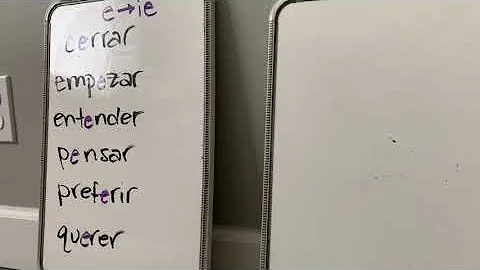 e→ie
cerrar
empezar
entender
pensar
preferir
querer